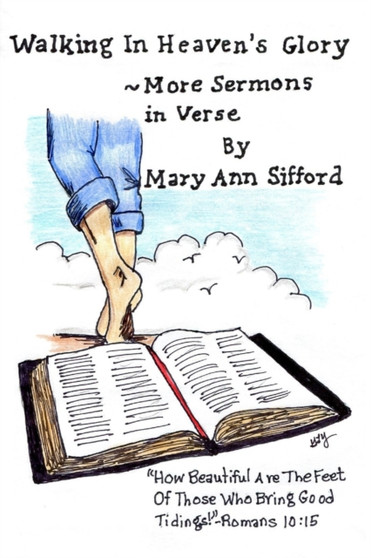 Walking In Heaven's Glory
~More Sermons
in Verse
By
Mary Ann Sifford
"How Beautiful Are The Feet
Of Those Who Bring Good
Tidings!"-Romans 10:15